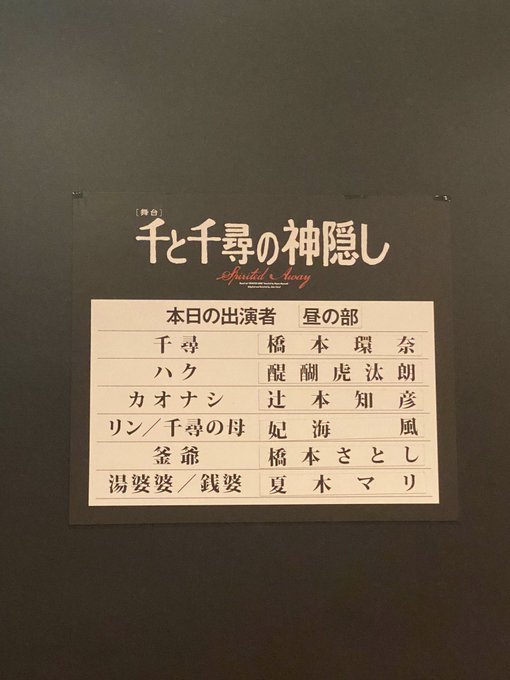 [舞台]
千と千尋の神隠し
Spirited Away
本日の出演者 昼の部
千尋 橋本環奈
ハク 醍醐虎汰朗
カオナシ 辻本知彦
リン／千尋の母 妃海風
釜爺 橋本さとし
湯婆婆／銭婆 夏木マリ